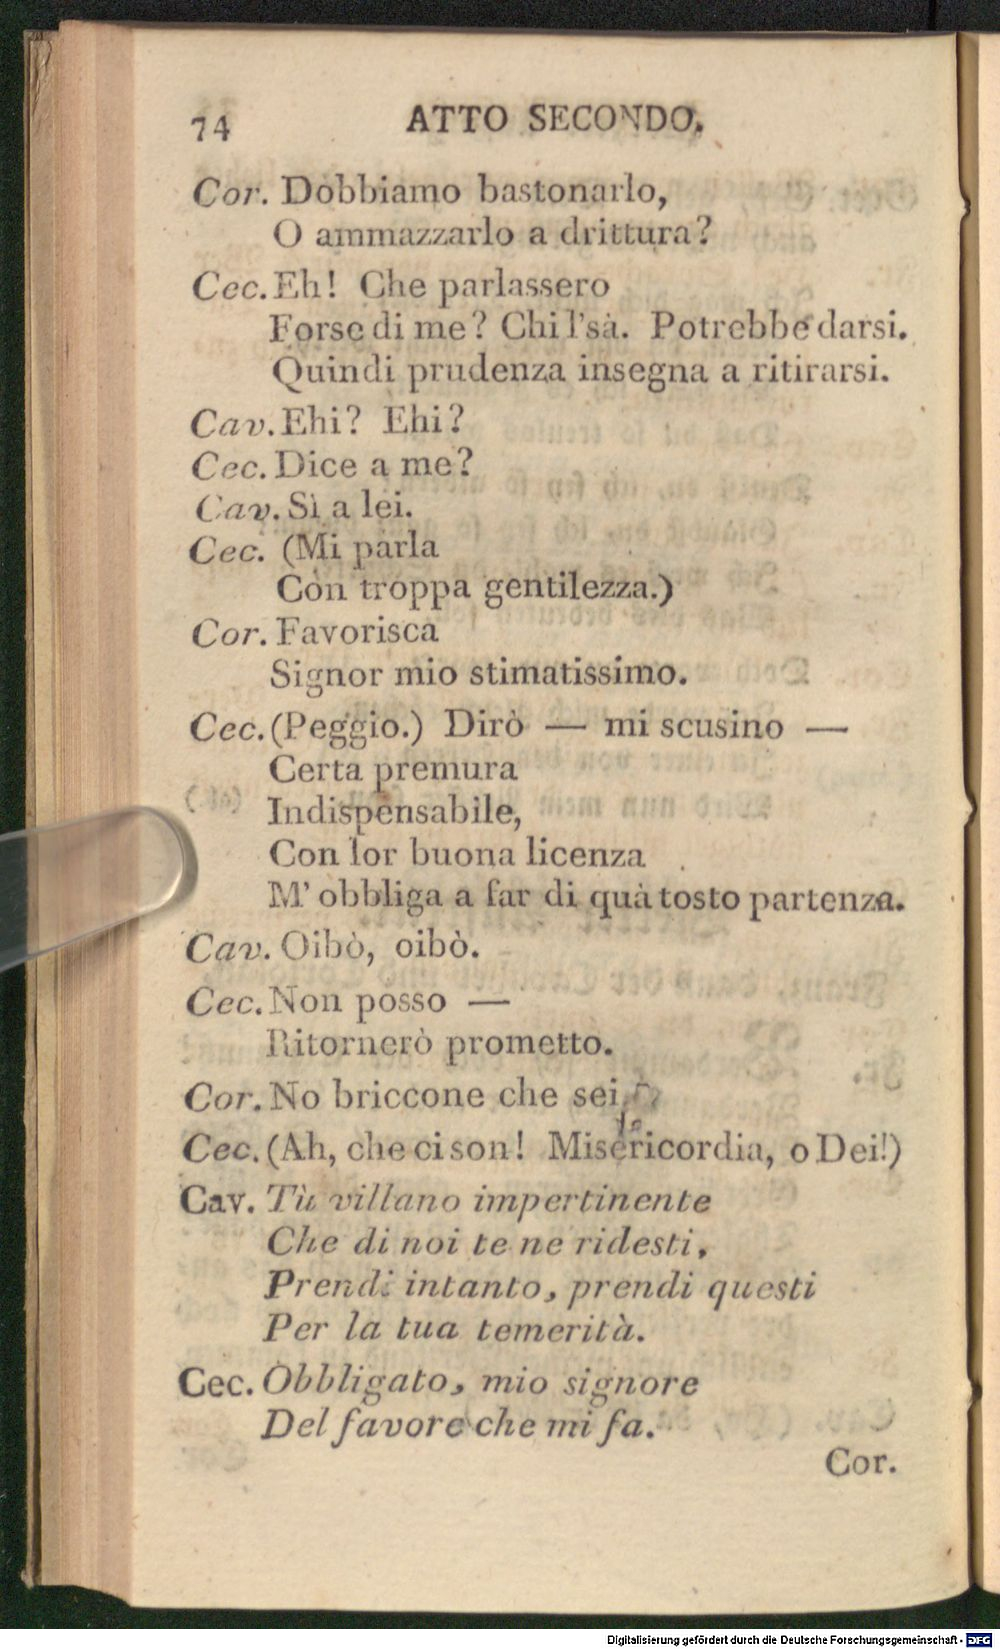 74 ATTO SECONDO.
Cor. Dobbiamo bastonarlo,
O ammazzarlo a drittura?
Cec. Eh! Che parlassero
Forse di me? Chi l'sà. Potrebbe darsi.
Quindi prudenza insegna a ritirarsi.
Cav. Ehi? Ehi?
Cec. Dice a me?
Cav. Sì a lei.
Cec. (Mi parla
Con troppa gentilezza.)
Cor. Favorisca
Signor mio stimatissimo.
Cec. (Peggio.) Dirò — mi scusino —
Certa premura
Indispensabile,
Con lor buona licenza
M' obbliga a far di quà tosto partenza.
Cav. Oibò, oibò.
Cec. Non posso —
Ritornerò prometto.
Cor. No briccone che sei
Cec. (Ah, che ci son! Misericordia, o Dei!)
Cav. Tù villano impertinente
Che di noi te ne ridesti,
Prendi intanto, prendi questi
Per la tua temerità.
Cec. Obbligato, mio signore
Del favore che mi fa.
Cor.
Digitalisierung gefördert durch die Deutsche Forschungsgemeinschaft - DFG